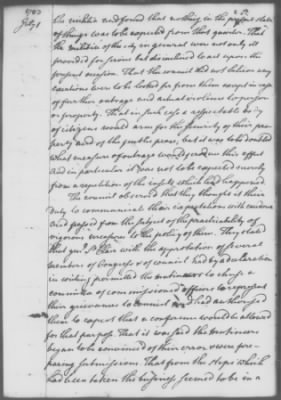 1783
July 1
the militia and found that nothing in the present state
of things was to be expected from that quarter. That
the militia of the city in general were not only ill
provided for service but disinclined to act upon the
present occasion. That the council did not believe any
exertions were to be looked for from them except in case
of further outrage and actual violence to person
or property. That in such case a respectable body
of citizens would arm for the security of their pro
perty and of the public peace, but it was to be doubted
what measure of outrage would produce this effect
and in particular it was not to be expected merely
from a repetition of the insult which had happened
The council observed that they thought it their
duty to communicate their expectations with candour
and passed from the subject of the practicability of
rigorous measures to the policy of them. They stated
that genl. St Clair with the approbation of several
members of Congress & of council had by a declaration
in writing permitted the mutineers to choose a
committee of commissioned officers to represent
their grievances to council and had authorised
them to expect that a conference would be allowed
for that purpose That it was said the mutineers
began to be convinced of their error & were pre-
paring submissions. That from the steps which
had been taken the business seemed to be in a